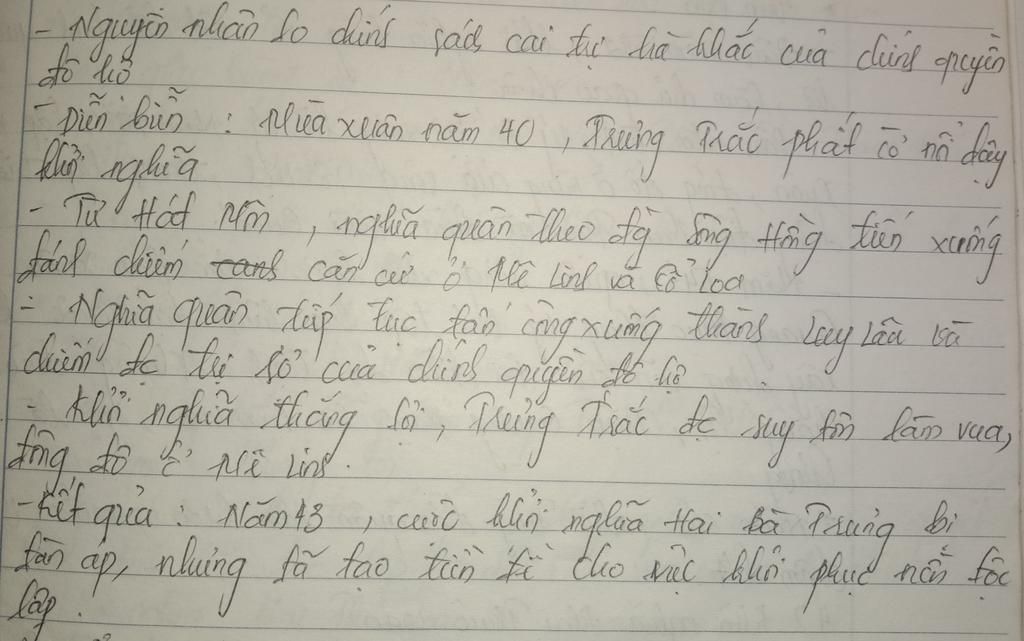 - Nguyên nhân do chính sách cai trị hà khắc của chính quyền
đô hộ
- Diễn biến : Mùa xuân năm 40 , Trưng Trắc phất cờ nổi dậy
khởi nghĩa
- Từ Hát Môn , nghĩa quân theo đg sông Hồng tiến xuống
đánh chiếm căn cứ ở Mê Linh và Cổ Loa
- Nghĩa quân tiếp tục tấn công xuống thành Luy Lâu và
chiếm đc trụ sở của chính quyền đô hộ .
- Khởi nghĩa thắng lợi , Trưng Trắc đc suy tôn làm vua,
đóng đô ở Mê Linh .
- Kết quả : Năm 43 , cuộc khởi nghĩa Hai Bà Trưng bị
đàn áp, nhưng đã tạo tiền đề cho việc khôi phục nền độc
lập .